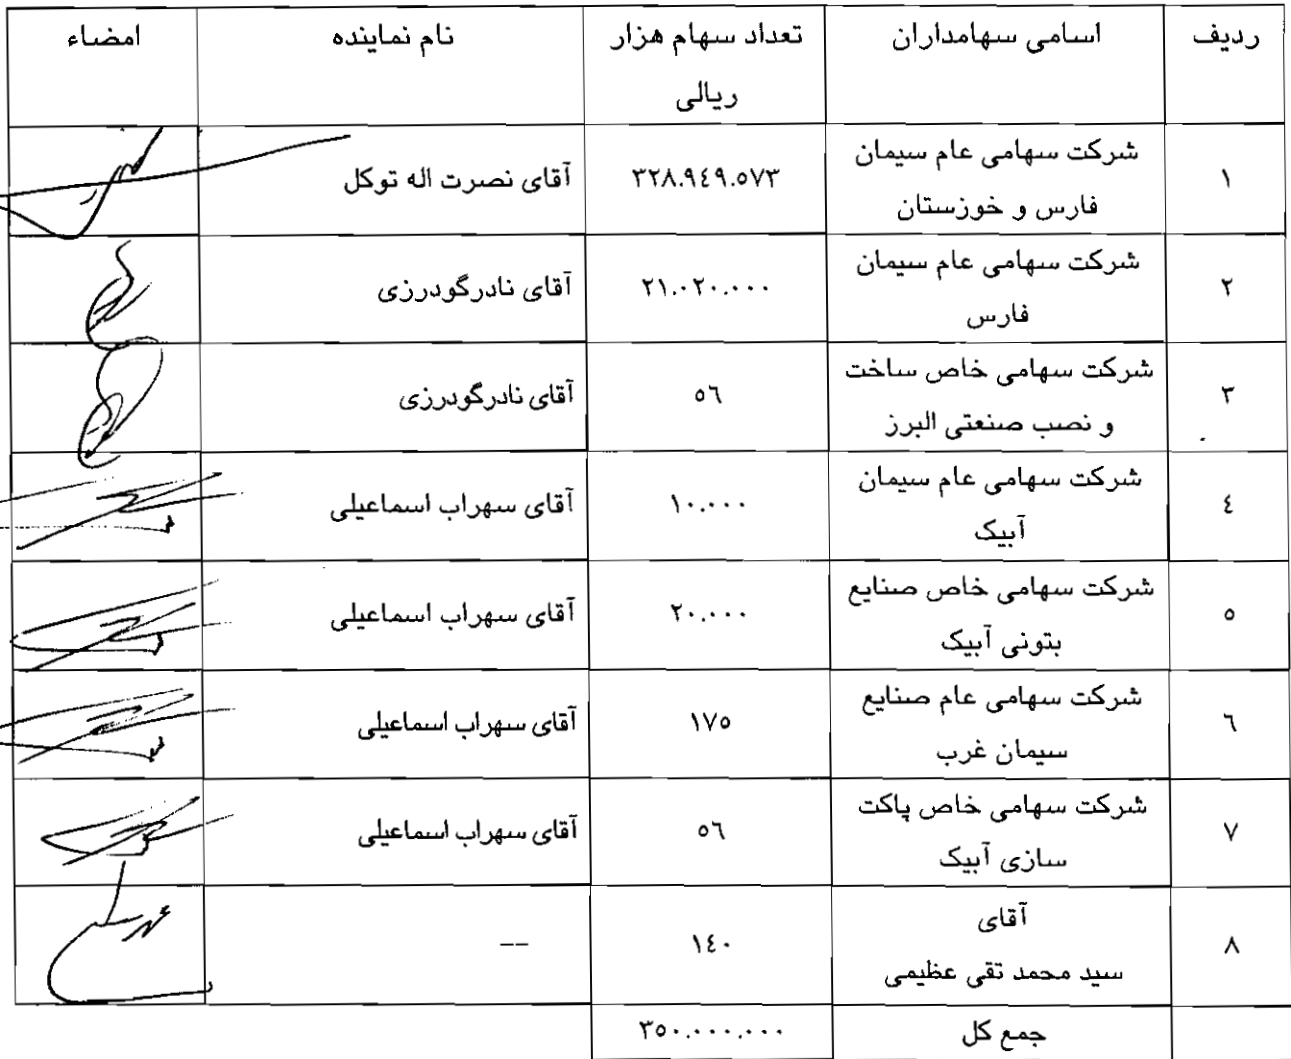 ردیف
اسامی سهامداران
تعداد سهام هزار
ریالی
نام نماینده
امضاء
۱
شرکت سهامی عام سیمان
فارس و خوزستان
۳۲۸.۹٤۹.۵۷۳
آقای نصرت اله توکل
۲
شرکت سهامی عام سیمان
فارس
۲۱.۰۲۰.۰۰۰
آقای نادرگودرزی
۳
شرکت سهامی خاص ساخت
و نصب صنعتی البرز
۵٦
آقای نادرگودرزی
٤
شرکت سهامی عام سیمان
آبیک
۱۰.۰۰۰
آقای سهراب اسماعیلی
۵
شرکت سهامی خاص صنایع
بتونی آبیک
۲۰.۰۰۰
آقای سهراب اسماعیلی
٦
شرکت سهامی عام صنایع
سیمان غرب
۱۷۵
آقای سهراب اسماعیلی
۷
شرکت سهامی خاص پاکت
سازی آبیک
۵٦
آقای سهراب اسماعیلی
۸
آقای
سید محمد تقی عظیمی
۱٤۰
--
جمع کل
۳۵۰.۰۰۰.۰۰۰